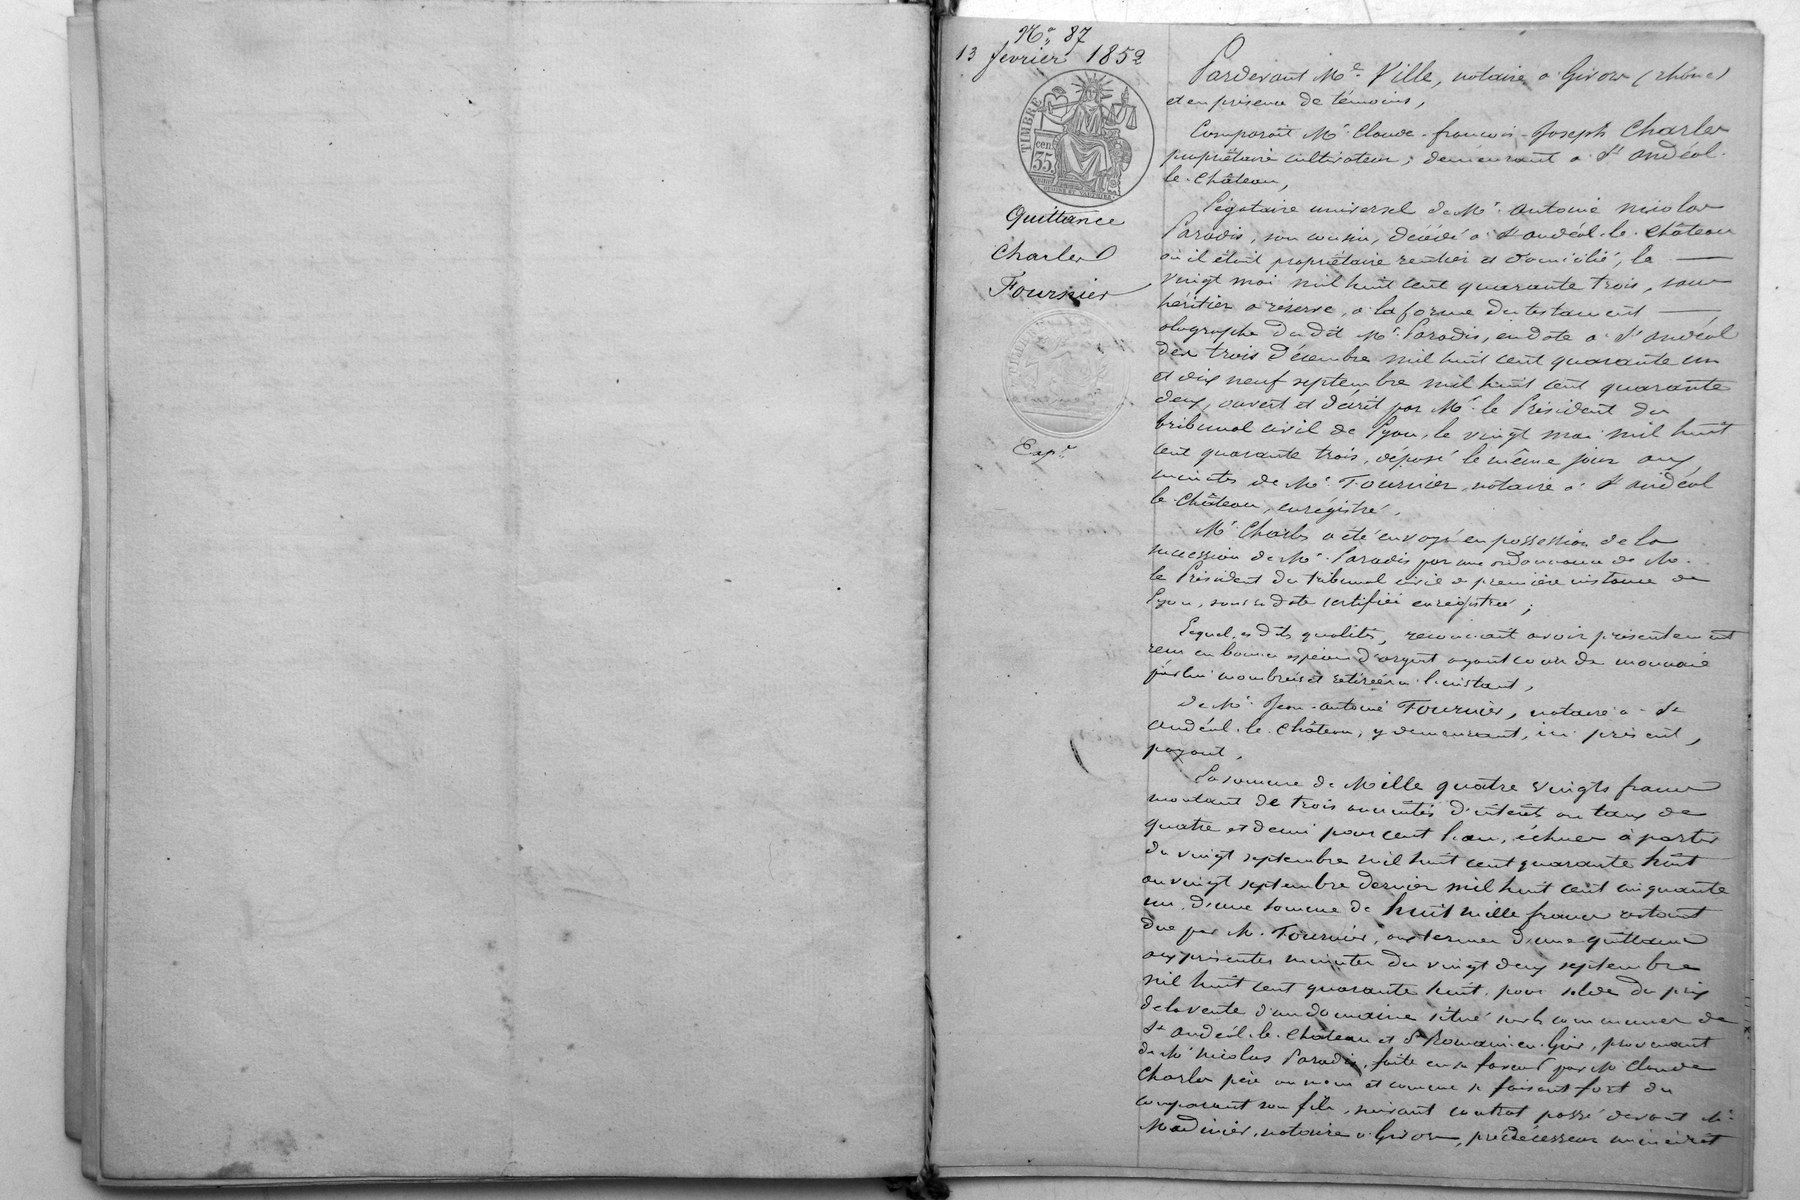 N° 87
13 février 1852
TIMBRE
35 cen
Quittance
Charles
Fournier
Exp.
Pardevant Me Ville, notaire à Givors (rhône)
et en présence de témoins,
Comparait Mr Claude-françois-Joseph Charles
propriétaire cultivateur, demeurant à St andéol-
le-Château,
Légataire universel de Mr antoine nicolas
Paradis, son cousin, décédé à St andéol-le-Château
où il était propriétaire rentier et domicilié, le
vingt mai mil huit cent quarante trois, sans
héritier à réserve, à la forme du testament
olographe du dit Mr Paradis, en date à St andéol
des trois décembre mil huit cent quarante un
et dix neuf septembre mil huit cent quarante
deux, ouvert et décrit par Mr le Président du
tribunal civil de Lyon, le vingt mai mil huit
cent quarante trois, déposé le même jour aux
minutes de Me Fournier, notaire à St andéol
le-Château, enrégistré.
Mr Charles a été envoyé en possession de la
succession de Mr Paradis par une ordonnance de M.
le Président du tribunal civil de première instance de
Lyon, sous sa date certifiée enrégistrée ;
Lequel, es dits qualités, reconnait avoir présentement
reçu en bonnes espèces d'argent ayant cours de monnaie
par lui nombrées et retirées à l'instant,
de Mr Jean-antoine Fournier, notaire à St
andéol-le-Château, y demeurant, ici présent,
payant,
La somme de Mille quatre vingts francs
montant de trois annuités d'intérêts au taux de
quatre et demi pour cent l'an, échues à partir
du vingt septembre mil huit cent quarante huit
au vingt septembre dernier mil huit cent cinquante
un, d'une somme de huit mille francs restant
due par M. Fournier, aux termes d'une quittance
aux présentes minutes du vingt deux septembre
mil huit cent quarante huit, pour solde du prix
de la vente d'un domaine situé sur les communes de
St andéol-le-Château et St Romain-en-Gier, provenant
de Mr Nicolas Paradis, faite en sa faveur par M Claude
Charles père au nom et comme se faisant fort du
comparant son fils, suivant contrat passé devant Me
Madinier, notaire à Givors, prédécesseur immédiat